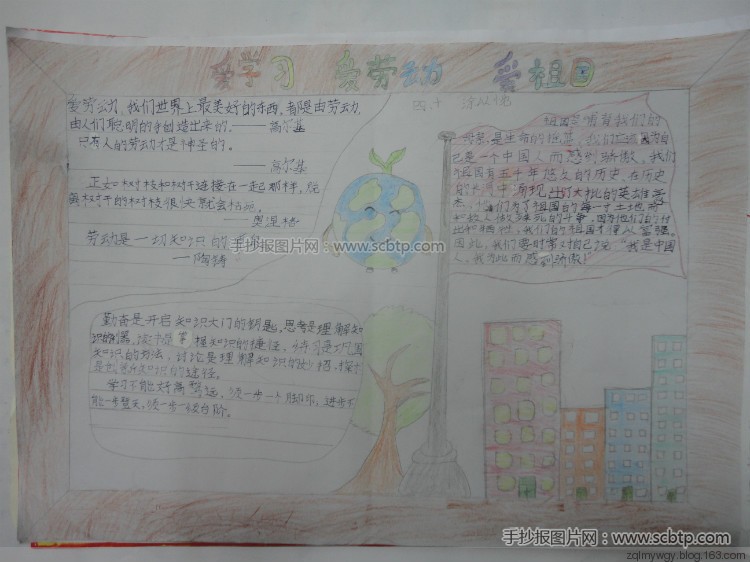 爱学习 爱劳动 爱祖国
爱劳动,我们世界上最美好的东西,都是由劳动,
由人们聪明的手创造出来的.——高尔基
只有人的劳动才是神圣的。
——高尔基
正如树枝和树干连接在一起那样,脱
离树干的树枝很快就会枯死。
——奥涅格
劳动是一切知识的
——陶铸
勤奋是开启知识大门的钥匙,思考是理解知
识的
知识的方法,讨论是理解知识的妙招,探
知识的途径。
学习不能好高骛远,须一步一个脚印,进步不
能一步登天,须一步一级台阶。
四、十
祖国是哺育我们的
母亲,是生命的摇篮,我们应该因为自
己是一个中国人而感到骄傲。我们
祖国有五千年悠久的历史,在历史
的长河中涌现出了大批的英雄豪
杰,他们为了祖国的每一寸土地而
和敌人作殊死的斗争,因为他们的付
出和牺牲,我们的祖国才得以富强。
因此,我们要时常对自己说:“我是中国
人,我为此而感到骄傲!”
手抄报图片网:www.scbtp.com
手抄报图片网:www.scbtp.com
zqlmywgy.blog.163.com